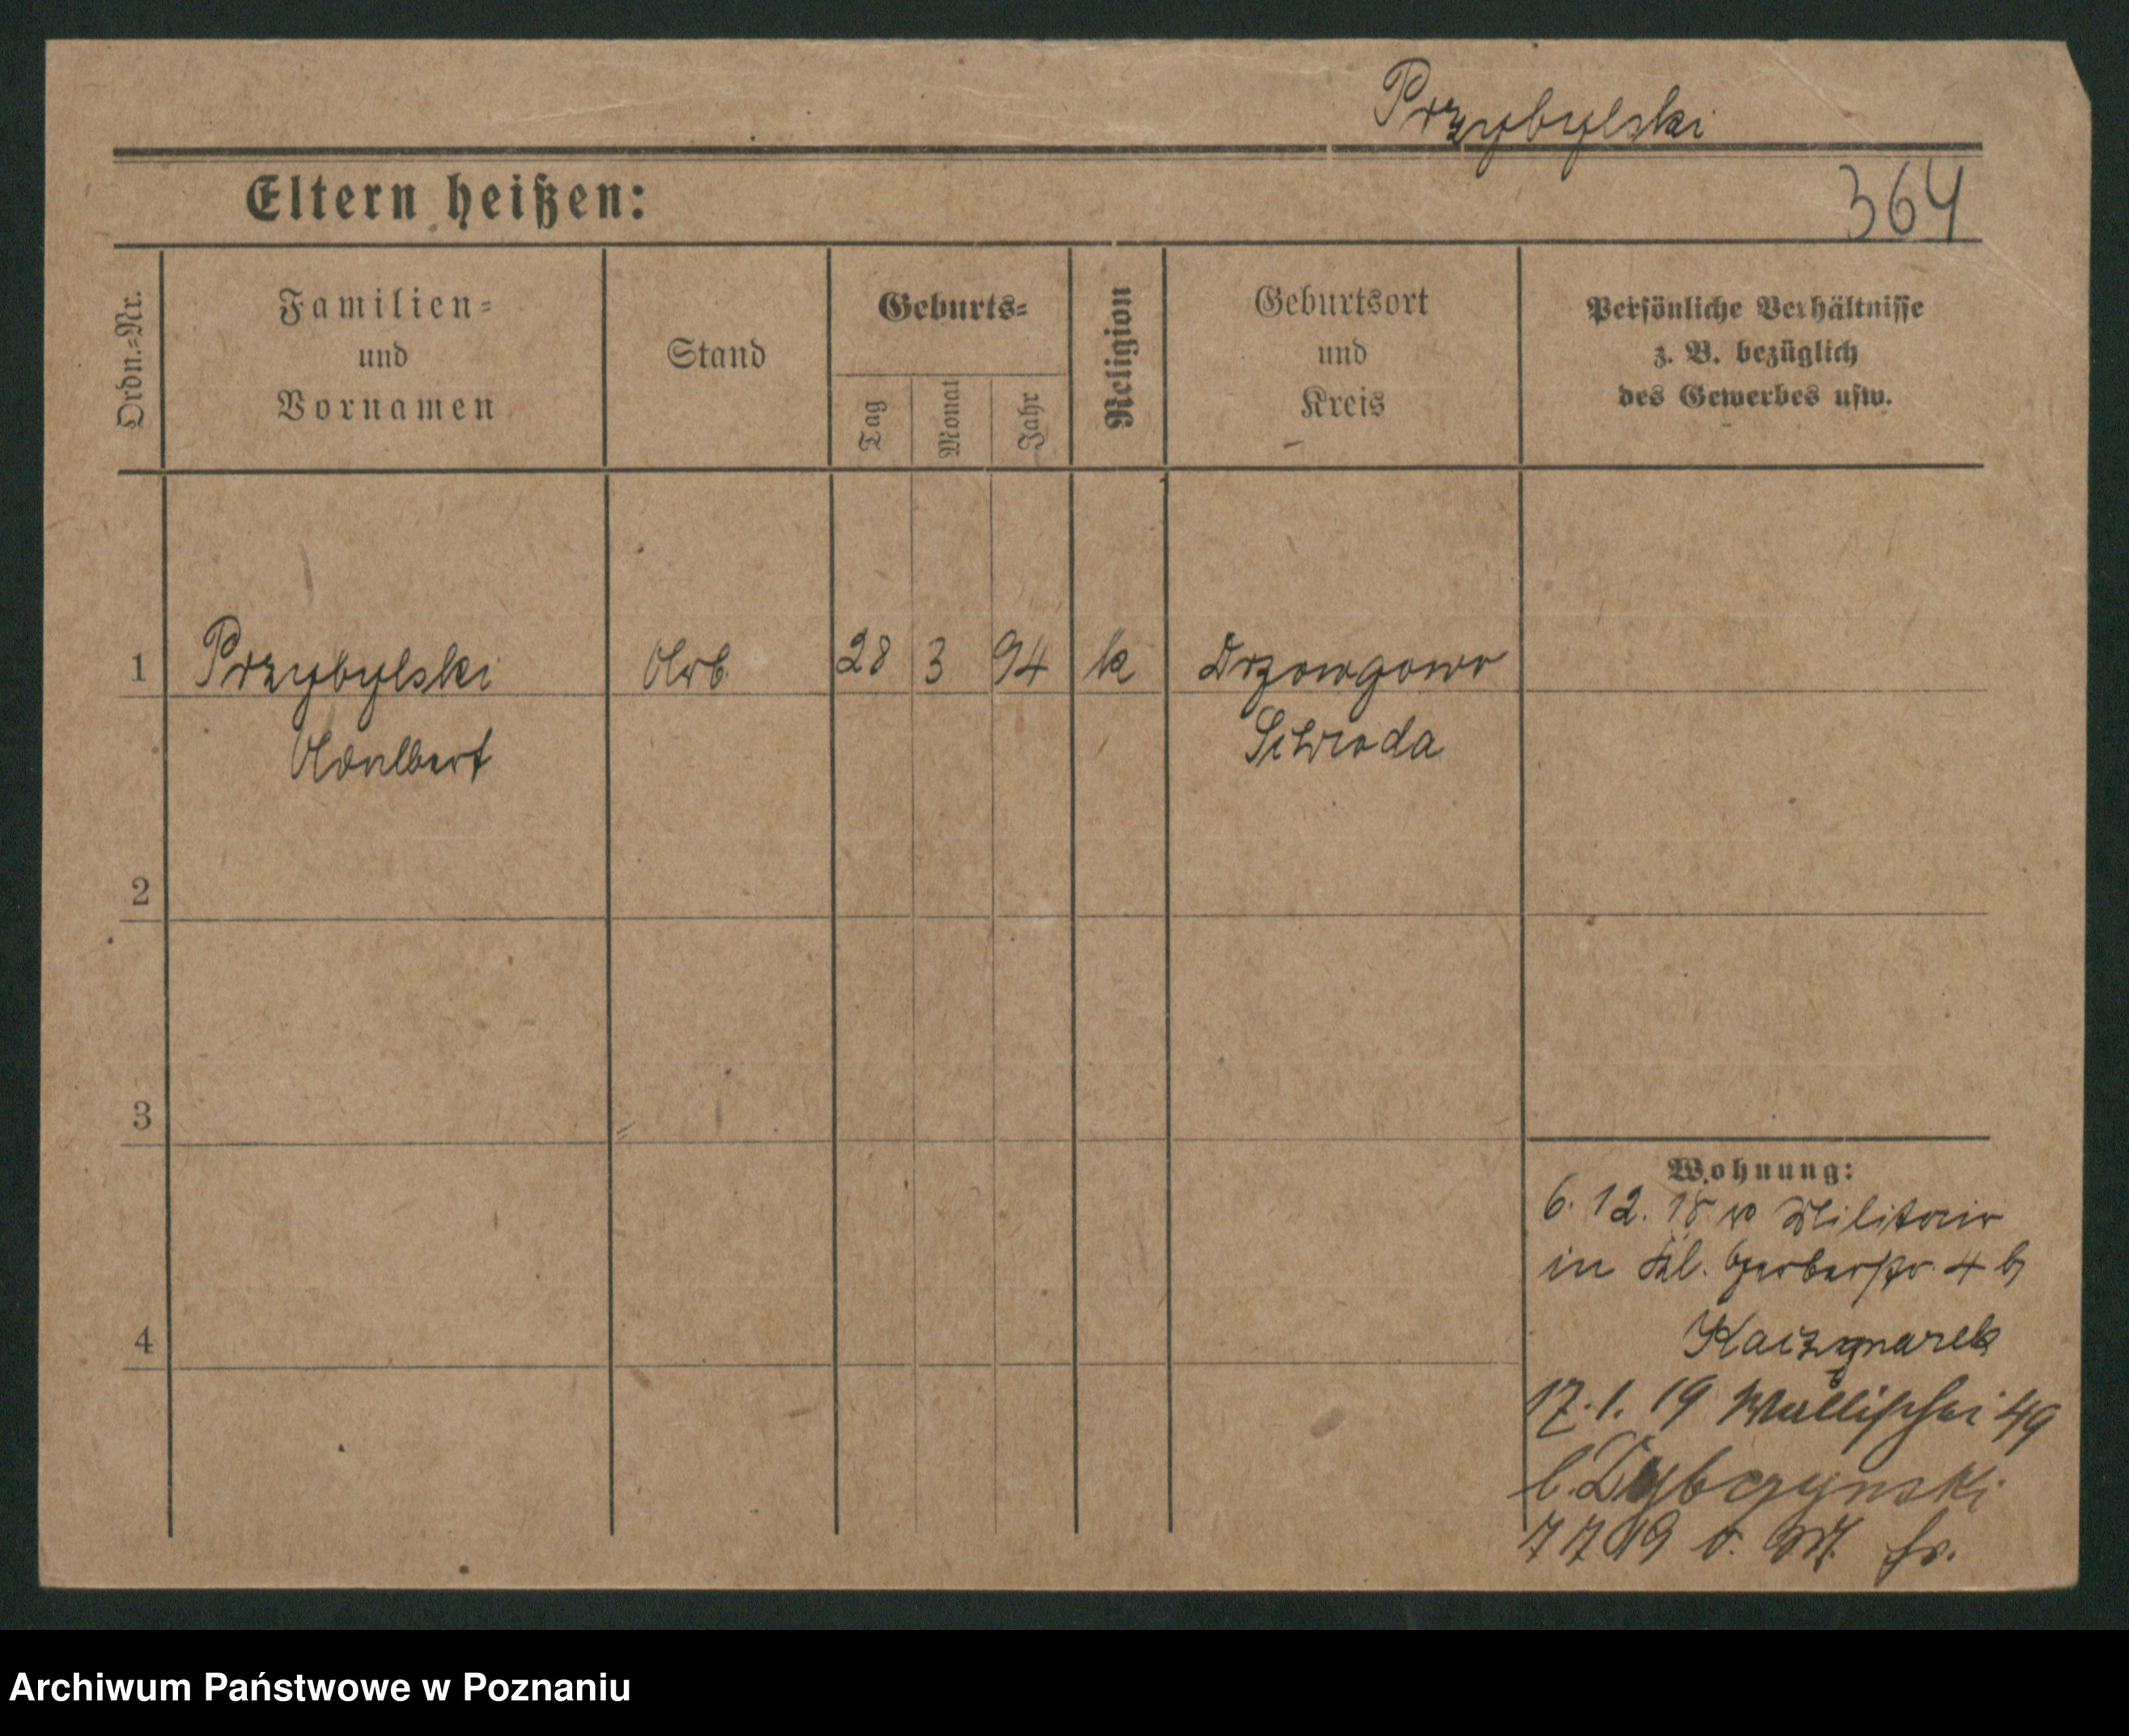 Przybylski
Eltern heißen:
364
Ordn.=Nr.
Familien=
und
Vornamen
Stand
Geburts=
Tag
Monat
Jahr
Religion
Geburtsort
und
Kreis
Persönliche Verhältnisse
z. B. bezüglich
des Gewerbes usw.
1
Przybylski
Arb.
28
3
94
k
Drzonzgowo
Adalbert
Schroda
2
3
4
Wohnung:
6. 12. 18 v Militair
in Kl. Gerberstr. 4 b
Kaczmarek
17. 1. 19 Wallischei 49
b. Dybczynski
7 7 19
Archiwum Państwowe w Poznaniu